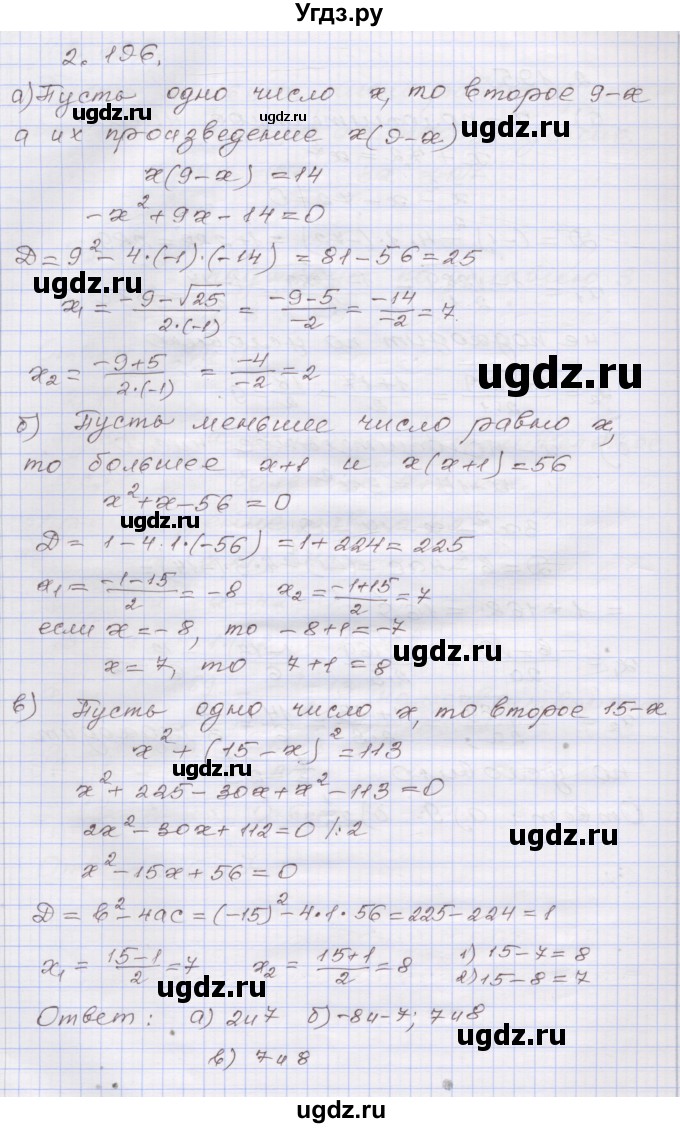 Угдз.ру
2.196.
а) Пусть одно число x, то второе 9-x
а их произведение x(9-x)
ugdz.ru
x(9-x) = 14
ugdz.ru
-x²+9x-14=0
Д=9²-4·(-1)·(-14) = 81-56=25
ugdz.ru
x₁ = (-9-√25)/(2·(-1)) = (-9-5)/(-2) = (-14)/(-2) = 7.
x₂ = (-9+5)/(2·(-1)) = (-4)/(-2) = 2
ugdz.ru
б) Пусть меньшее число равно x,
то большее x+1 и x(x+1)=56
x²+x-56=0
ugdz.ru
Д= 1-4·1·(-56) =1+224= 225
x₁= (-1-15)/2 = -8 x₂= (-1+15)/2 = 7
если x=-8, то -8+1=-7
ugdz.ru
x=7, то 7+1=8
в) Пусть одно число x, то второе 15-x
x²+(15-x)²=113
ugdz.ru
x²+225-30x+x²-113=0
2x²-30x+112=0 /:2
ugdz.ru
x²-15x+56=0
Д= в²-4ас=(-15)²-4·1·56=225-224=1
x₁= (15-1)/2 =7 x₂= (15+1)/2 =8 1) 15-7=8
2)15-8=7
ugdz.ru
ugdz.ru
Ответ: а) 2и7 б)-8и-7; 7и8
ugdz.ru
в) 7и8
ugdz.ru